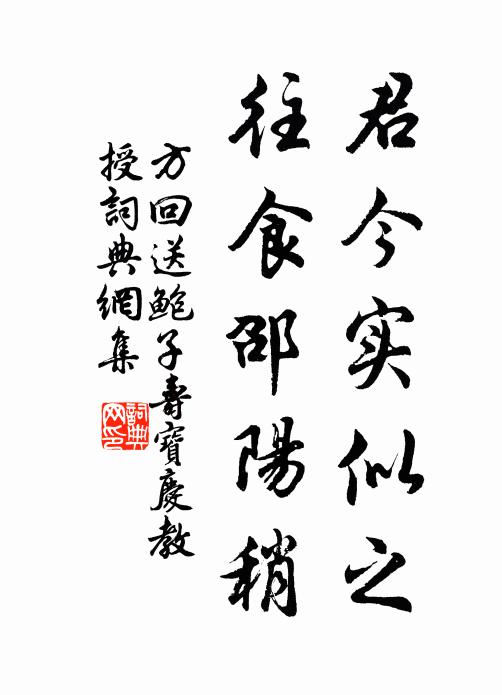 君今实似之
往食邵陽稍
方回送鲍子壽寶慶教
授詞典網集
詞典
网印